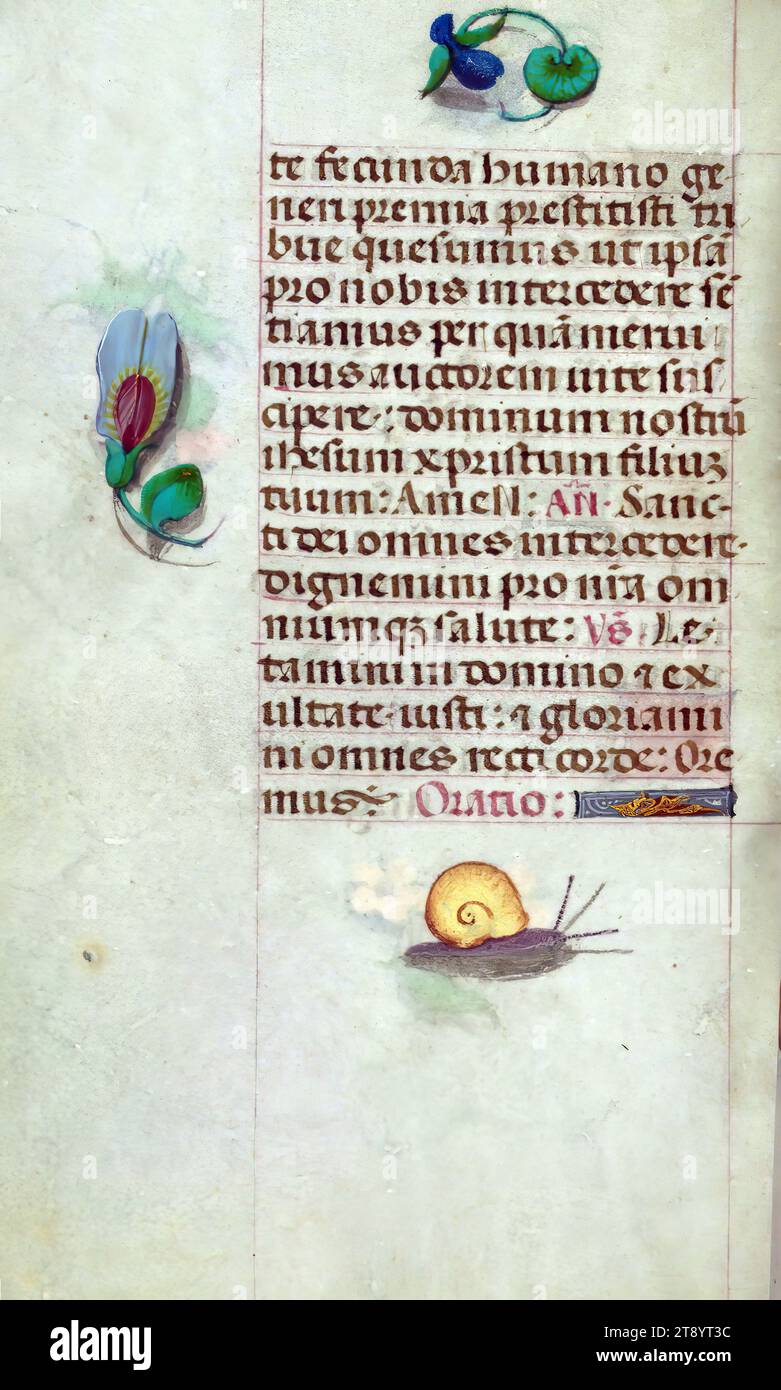 te fecunda humano ge-
neri premia prestitisti tri
bue quesumus ut ipsā
pro nobis intercedere sē
tiamus per quā merui
mus auctorem uite sus
cipere: dominum nostrū
ihesum xpristum filiuʒ
tuum: Amen: AÑ· Sanc-
ti dei omnes intercedere·
dignemini pro nīa om
niumqʒ salute: Vs̄ Le
tamini in domino ⁊ ex
ultate iusti: ⁊ gloriami
ni omnes recti corde: Ore
mus: Oratio:
alamy
alamy
a
a
a
a
alamy
Image ID: 2T8YT3C
www.alamy.com